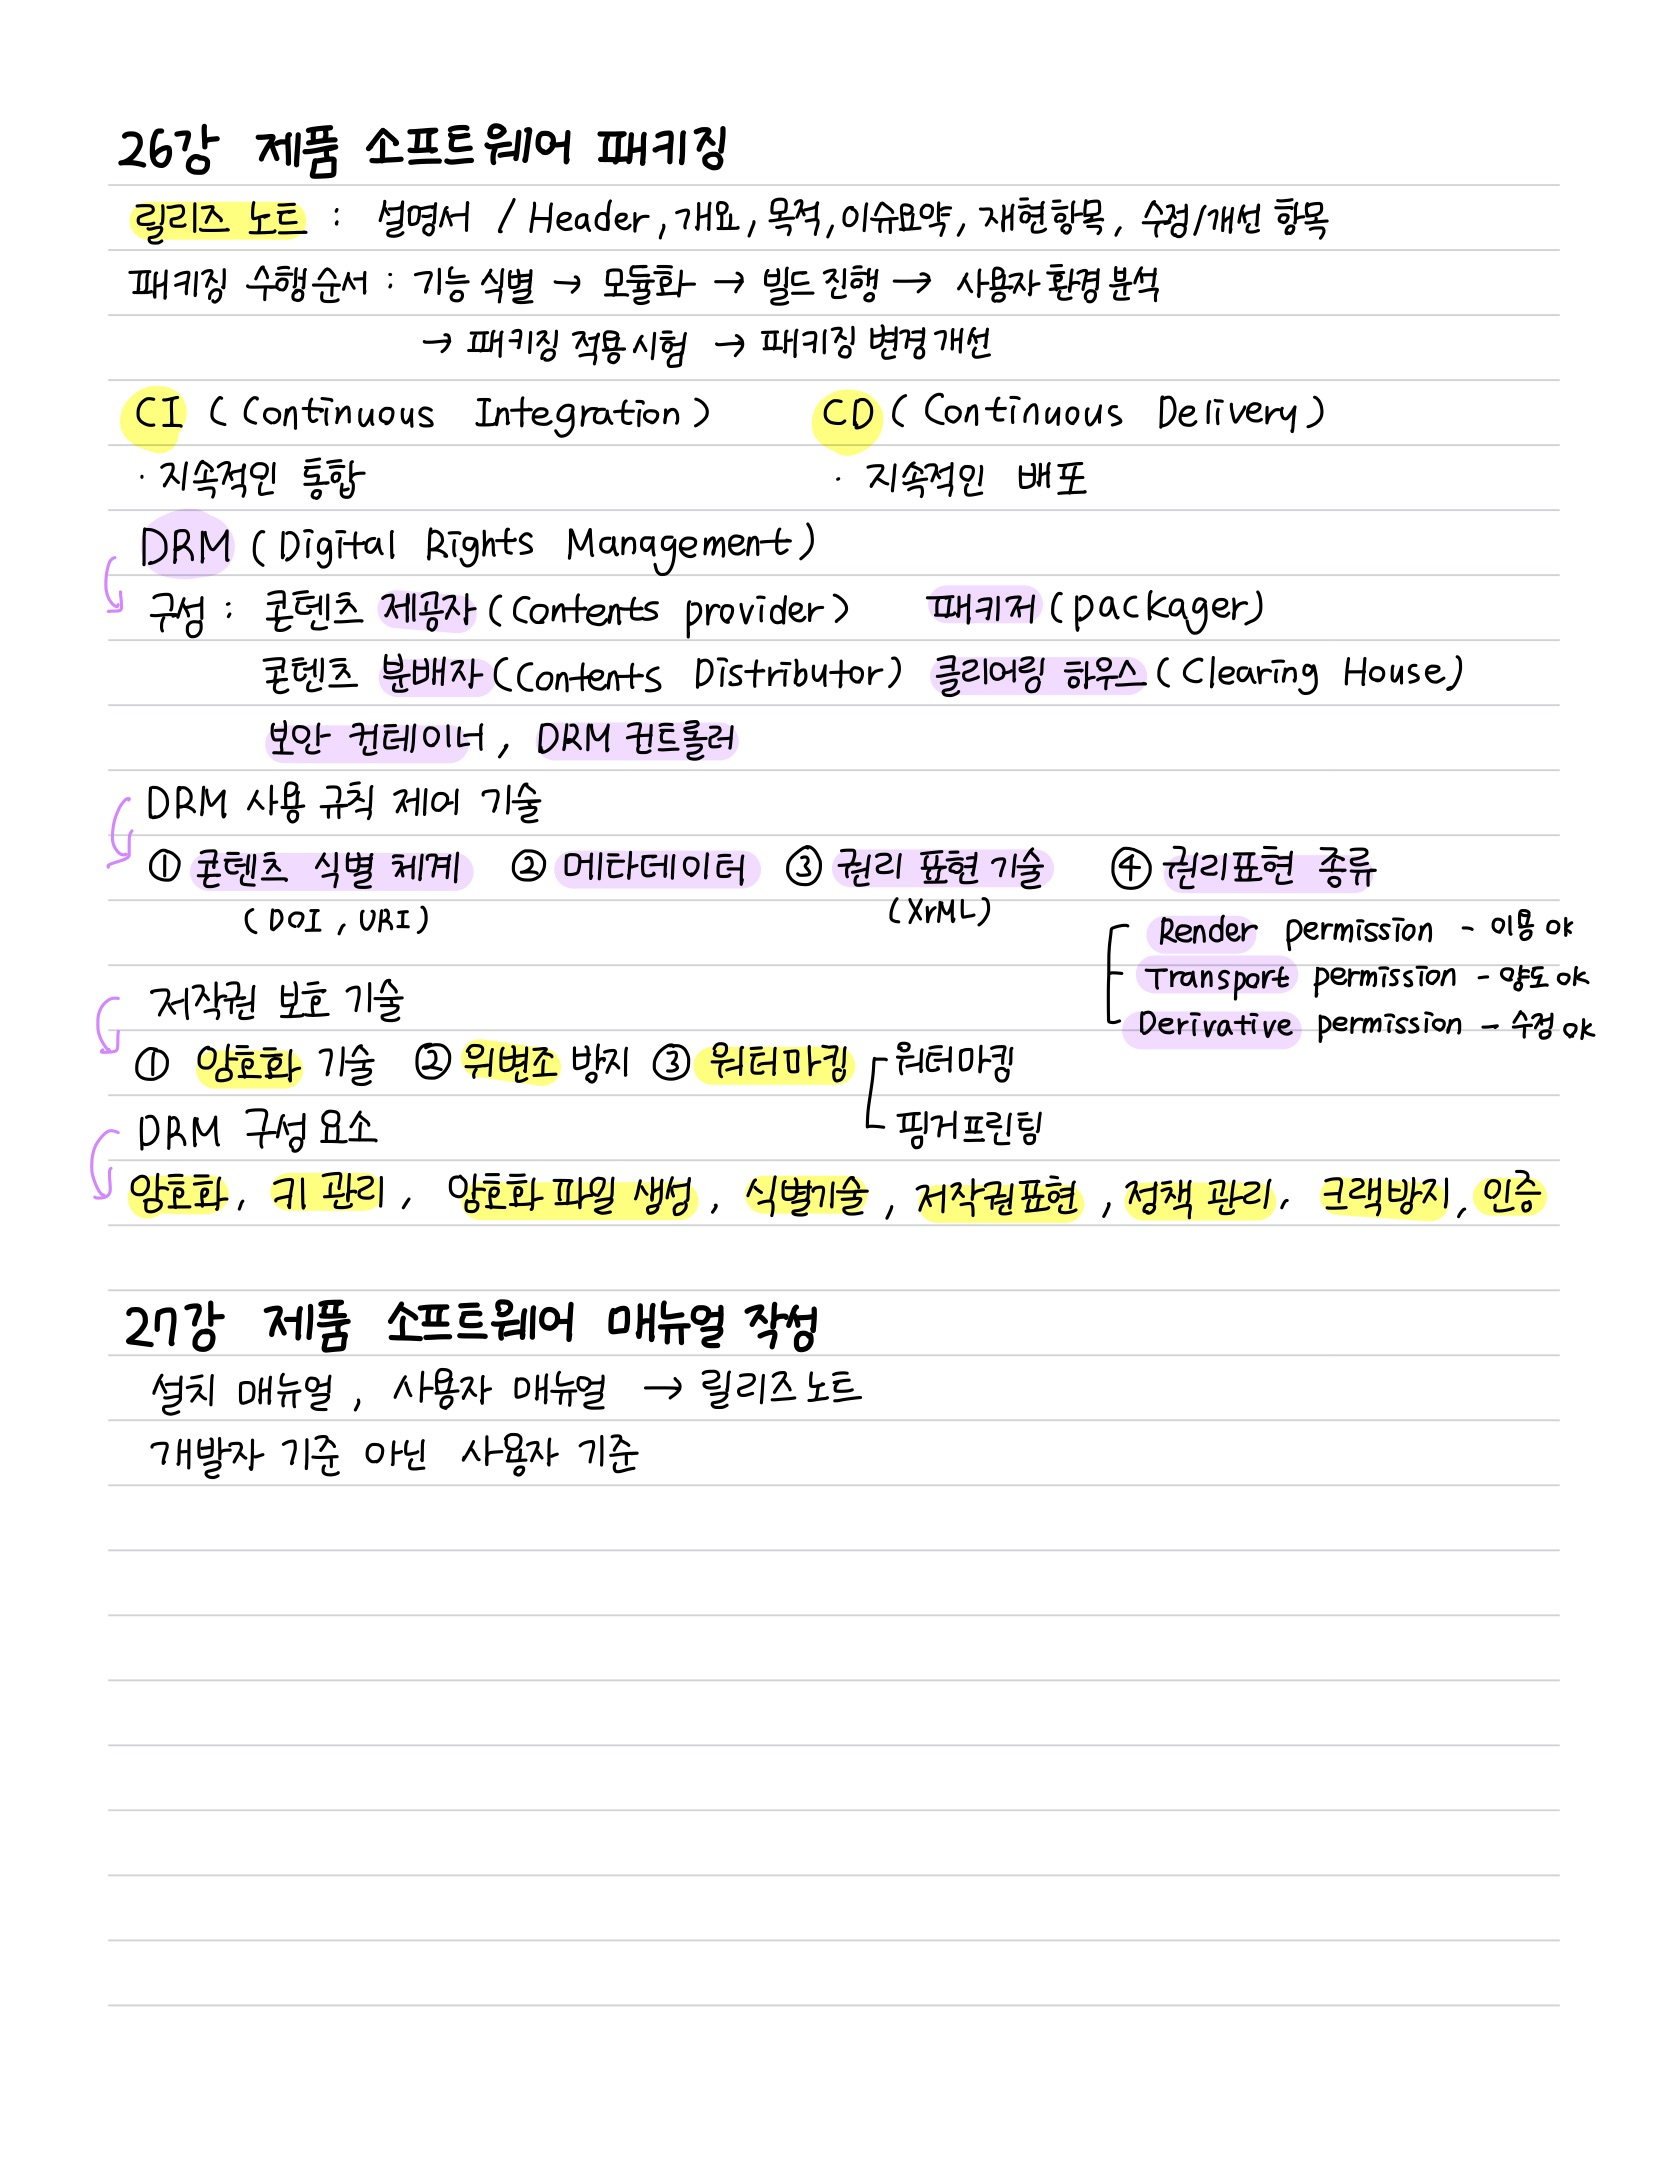 26강 제품 소프트웨어 패키징
릴리즈 노트 : 설명서 / Header, 개요, 목적, 이슈요약, 재현항목, 수정/개선 항목
패키징 수행순서 : 기능 식별 → 모듈화 → 빌드 진행 → 사용자 환경 분석
→ 패키징 적용시험 → 패키징 변경개선
CI (Continuous Integration) CD (Continuous Delivery)
· 지속적인 통합 · 지속적인 배포
DRM (Digital Rights Management)
구성 : 콘텐츠 제공자 (Contents provider) 패키저 (packager)
콘텐츠 분배자 (Contents Distributor) 클리어링 하우스 (Clearing House)
보안 컨테이너, DRM 컨트롤러
DRM 사용 규칙 제어 기술
① 콘텐츠 식별 체계 ② 메타데이터 ③ 권리 표현 기술 ④ 권리표현 종류
(DOI, URI) (XrML)
Render permission - 이용 ok
Transport permission - 양도 ok
Derivative permission - 수정 ok
저작권 보호 기술
① 암호화 기술 ② 위변조 방지 ③ 워터마킹 워터마킹
핑거프린팅
DRM 구성요소
암호화, 키 관리, 암호화 파일 생성, 식별기술, 저작권표현, 정책 관리, 크랙방지, 인증
27강 제품 소프트웨어 매뉴얼 작성
설치 매뉴얼, 사용자 매뉴얼 → 릴리즈 노트
개발자 기준 아닌 사용자 기준